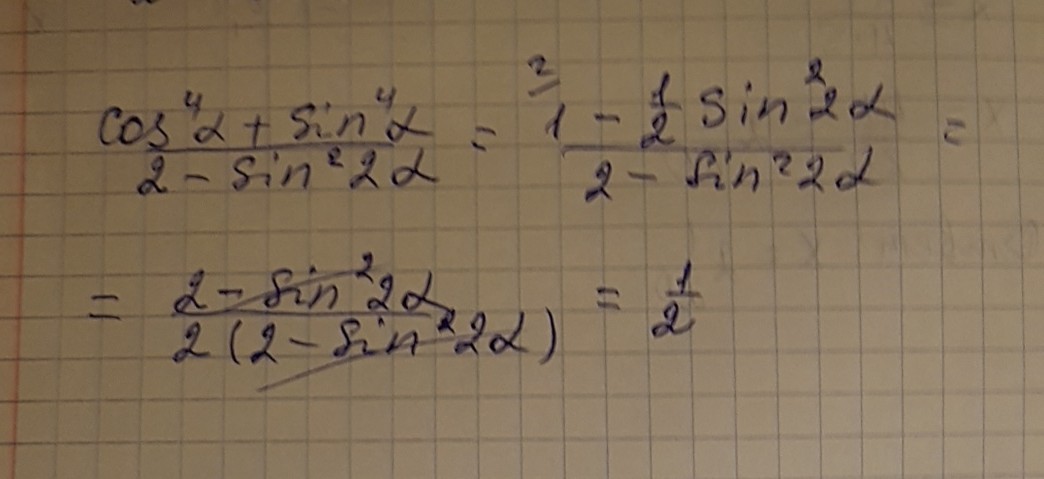 cos⁴α + sin⁴α / 2 - sin²2α = ²⁄ 1 - 1/2 sin²2α / 2 - sin²2α =
= 2 - sin²2α / 2 (2 - sin²2α) = 1/2